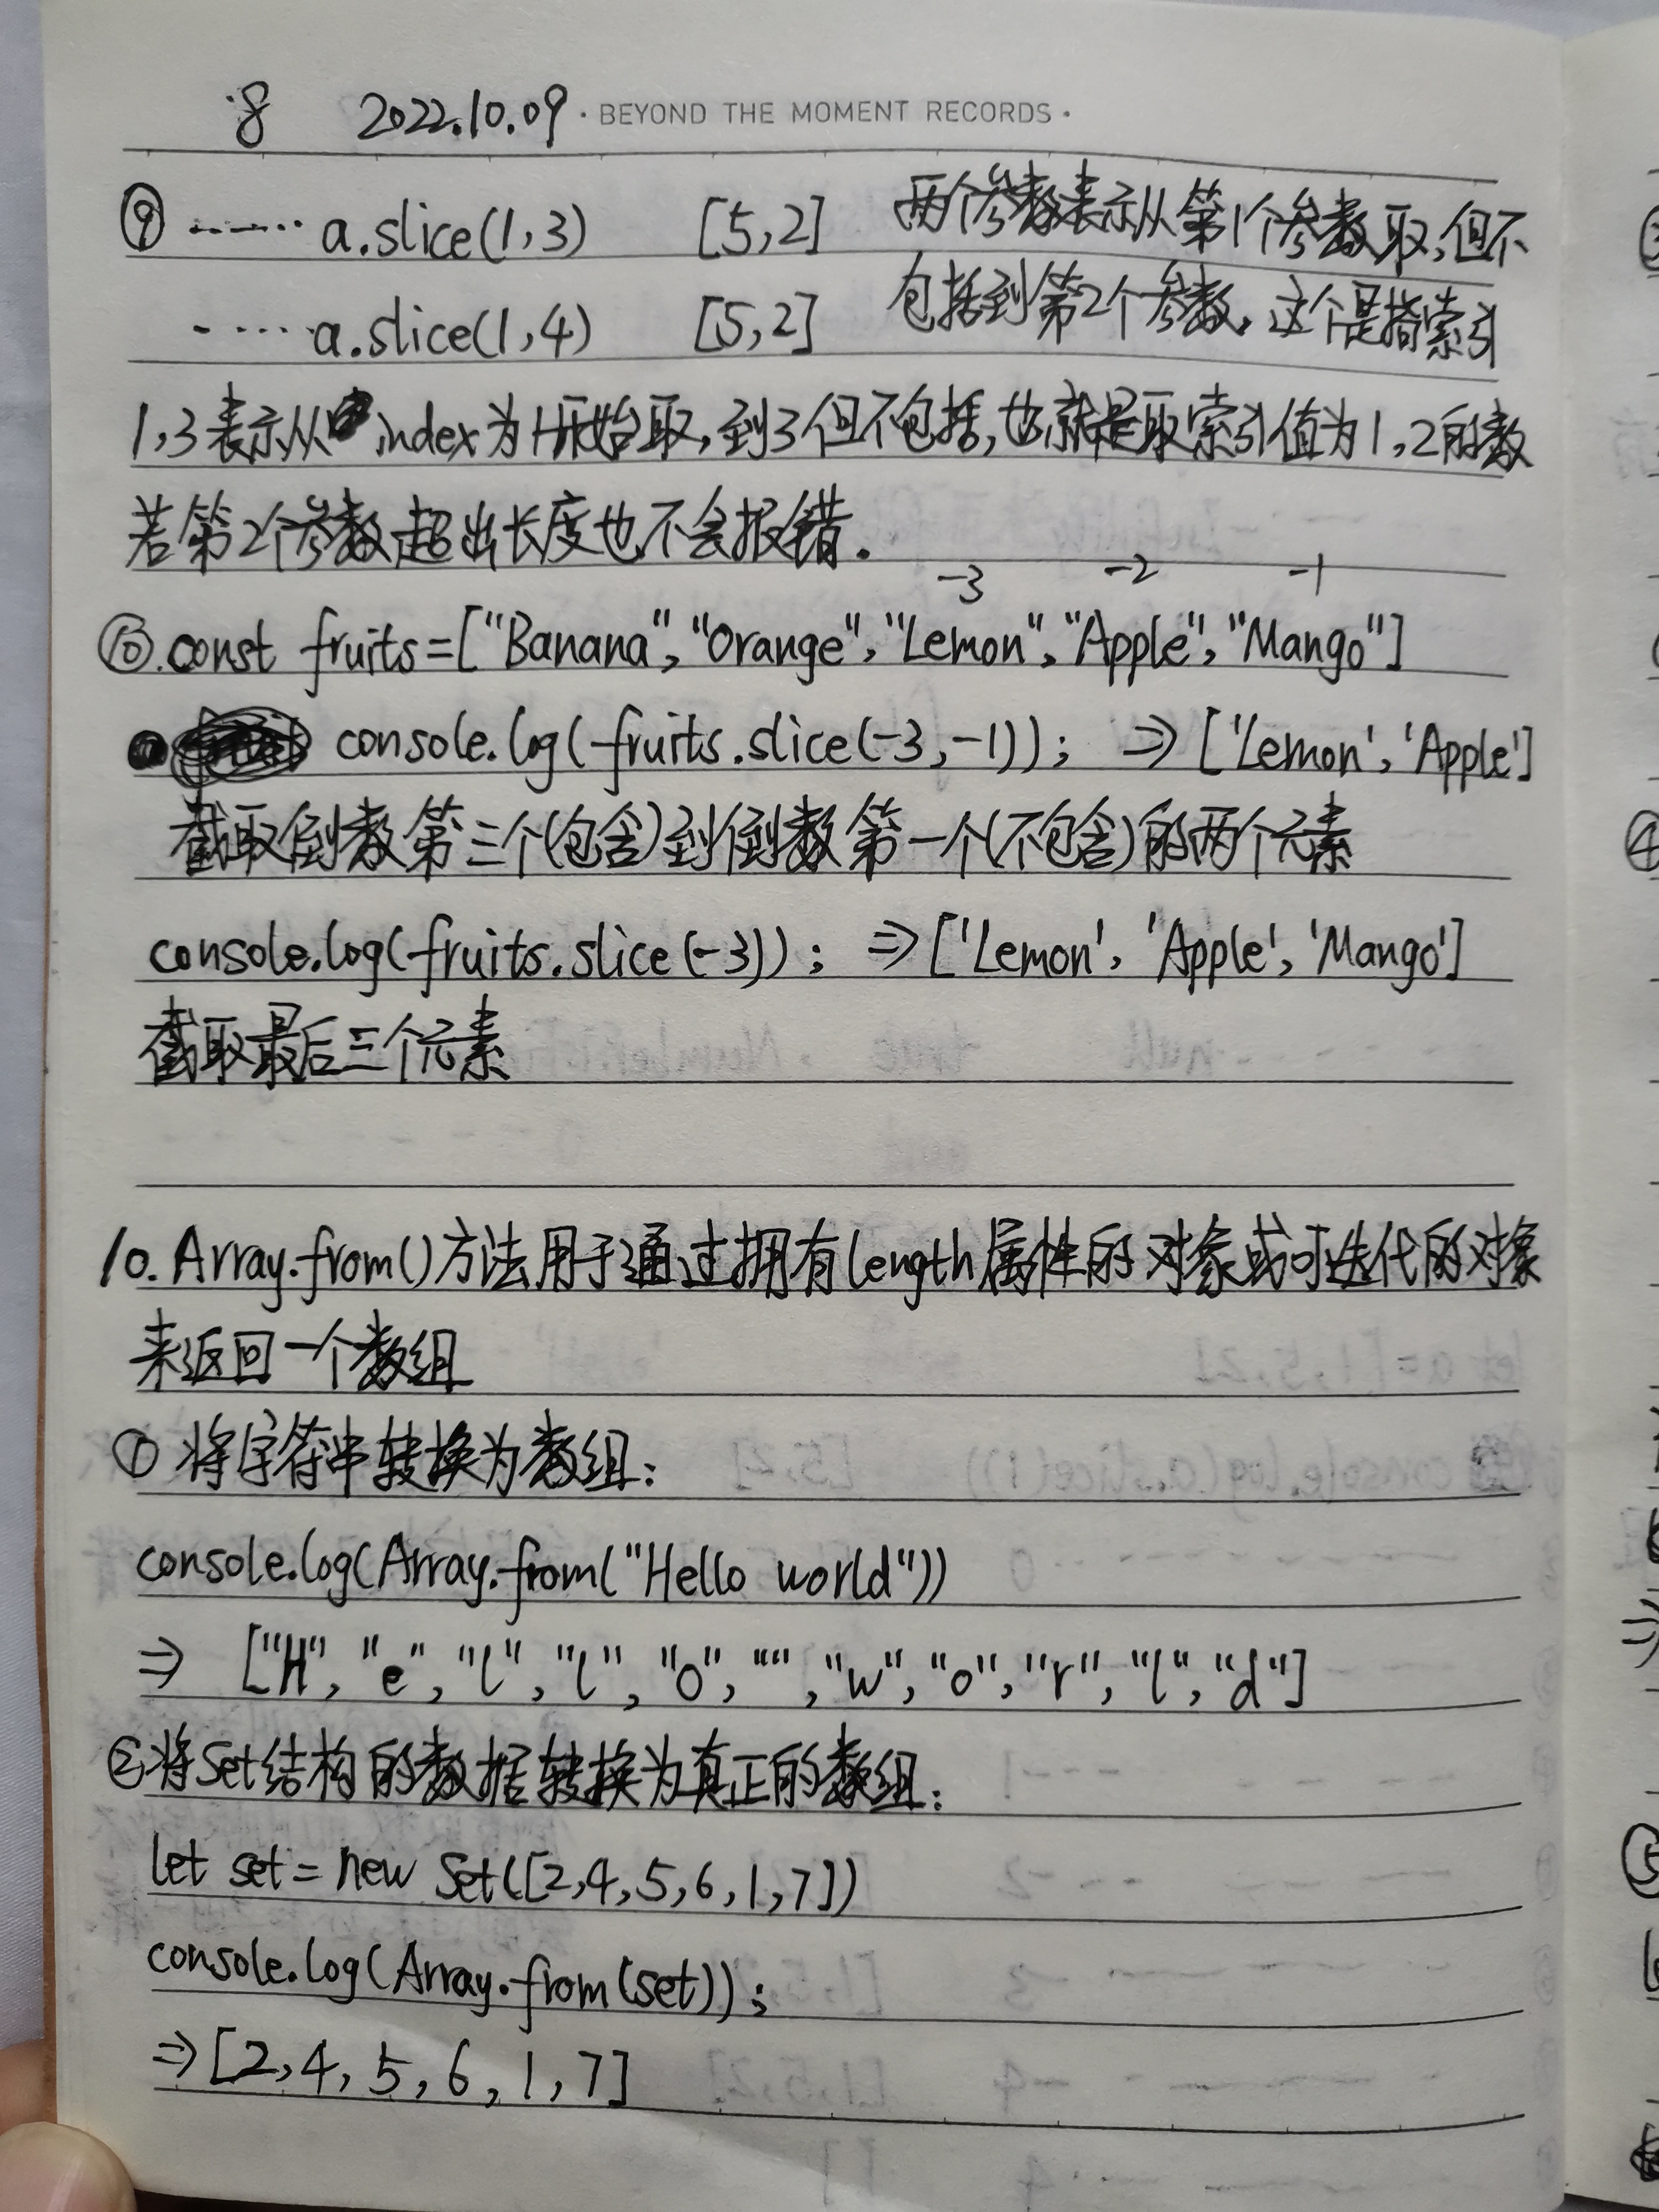 8 2022.10.09 · BEYOND THE MOMENT RECORDS ·
⑨ ······· a.slice(1,3) [5,2] 两个参数表示从第1个参数取,但不
····· a.slice(1,4) [5,2] 包括到第2个参数,这个是指索引
1,3表示从index为1开始取,到3但不包括,也就是取索引值为1,2的数
若第2个参数超出长度也不会报错.
-3 -2 -1
⑩.const fruits=["Banana","Orange","Lemon","Apple","Mango"]
console.log(fruits.slice(-3,-1)); ⇒ ['Lemon','Apple']
截取倒数第三个(包含)到倒数第一个(不包含)的两个元素
console.log(fruits.slice(-3)); ⇒['Lemon','Apple','Mango']
截取最后三个元素
10. Array.from()方法用于通过拥有length属性的对象或可迭代的对象
来返回一个数组
① 将字符串转换为数组:
console.log(Array.from("Hello world"))
⇒ ["H","e","l","l","o","","w","o","r","l","d"]
②将Set结构的数据转换为真正的数组:
let set = new Set([2,4,5,6,1,7])
console.log(Array.from(set));
⇒[2,4,5,6,1,7]
④